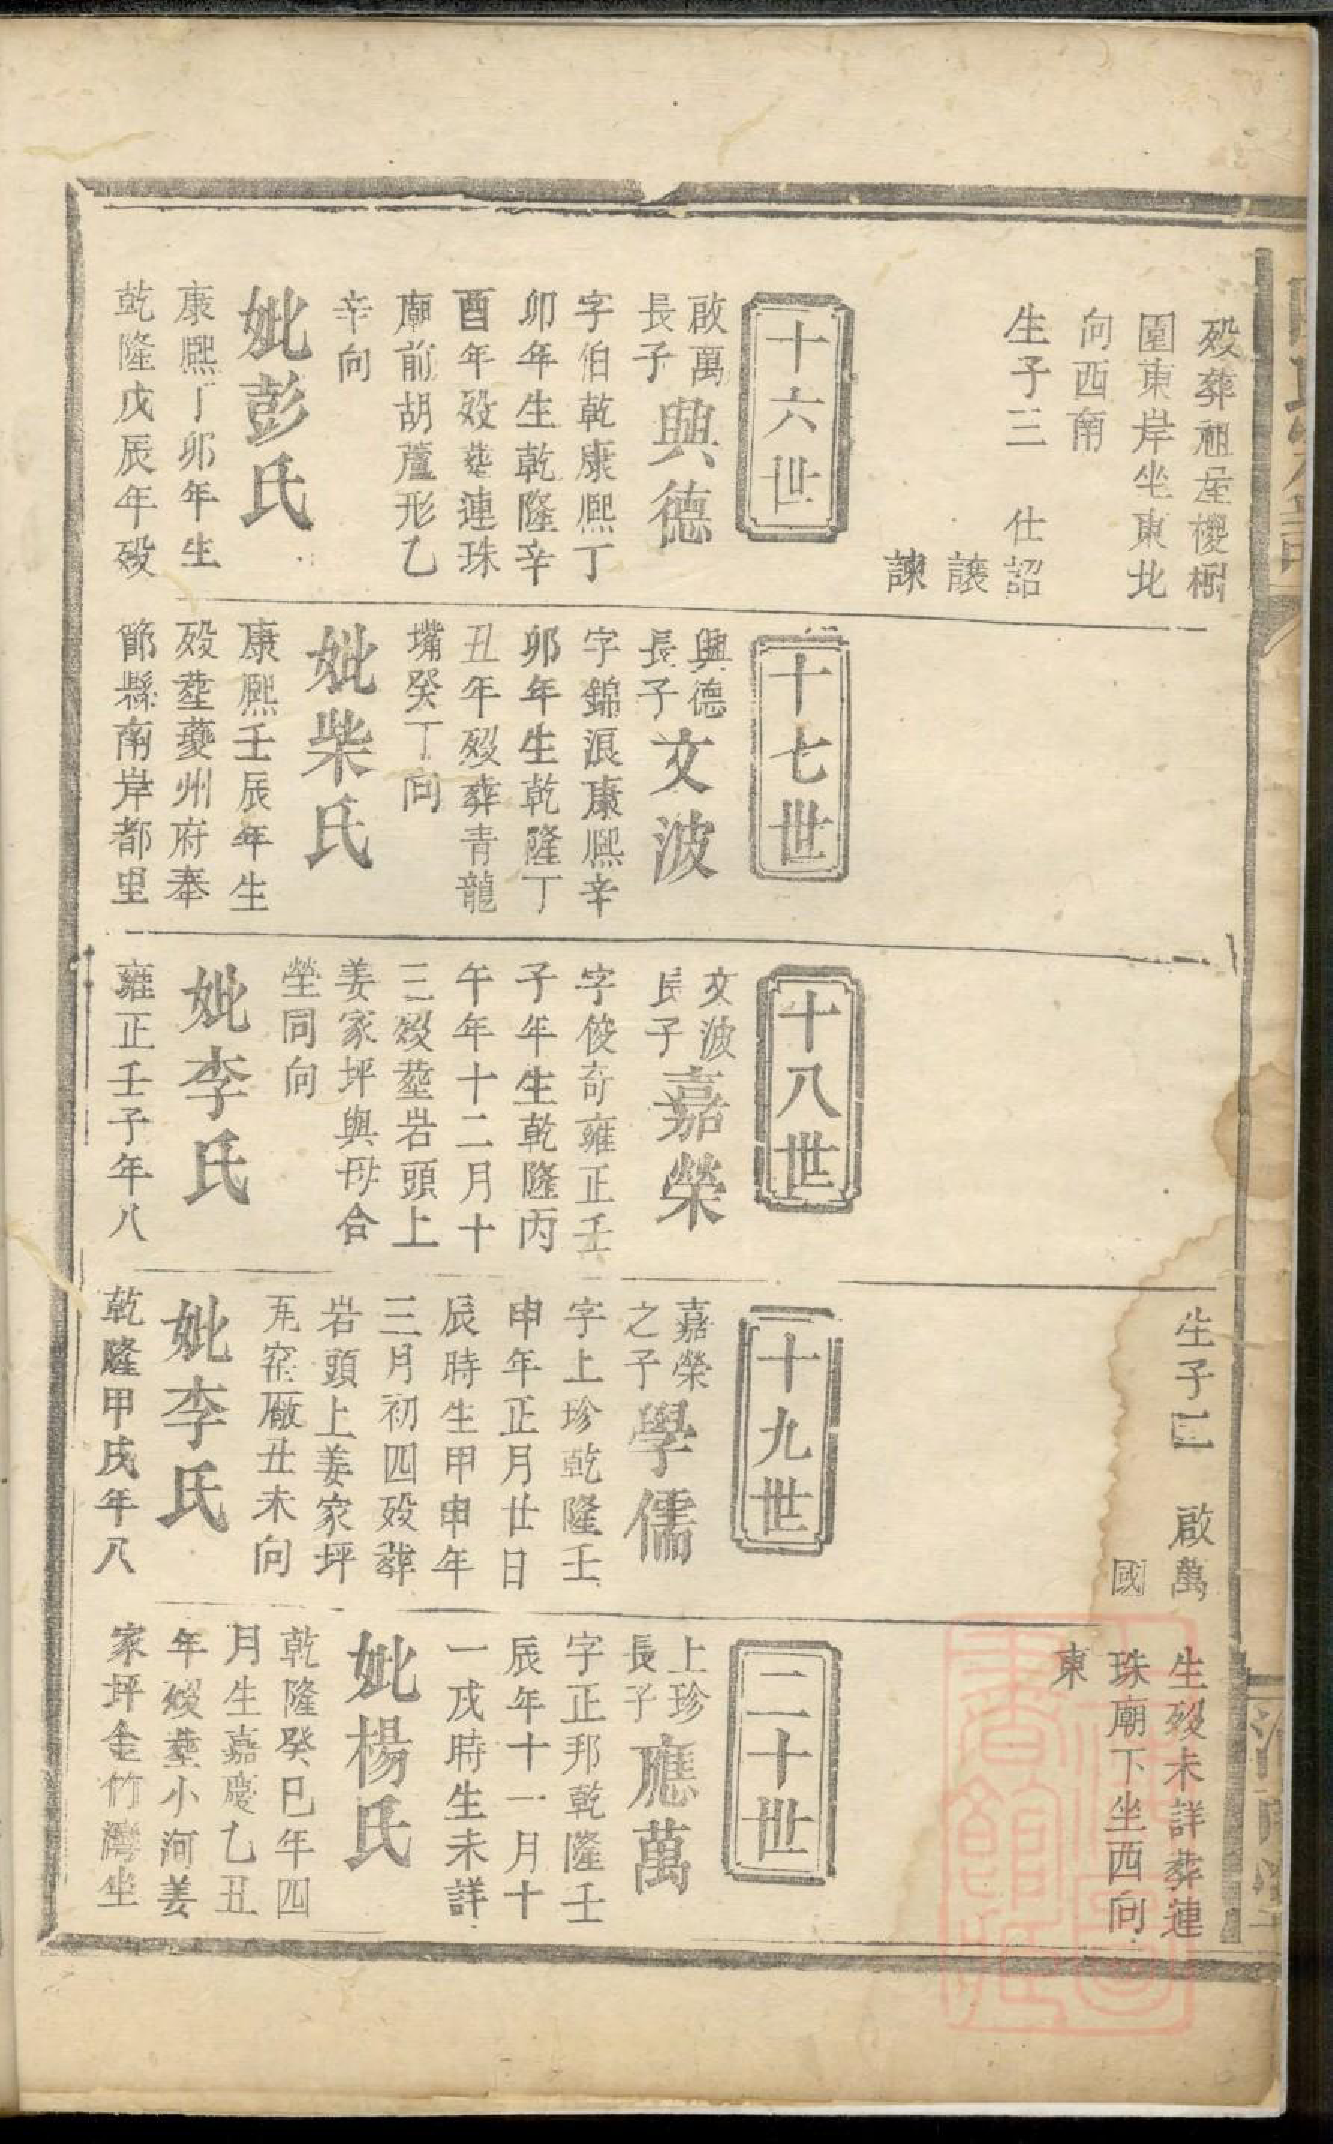 殁葬祖屋㮶樹
園東岸坐東北
向西南
生子三 仕詔
譲
諫
十六世
啟萬
長子
興德
字伯乾康熙丁
卯年生乾隆辛
酉年殁塟連珠
廟前胡蘆形乙
辛向
妣彭氏
康熙丁卯年生
乾隆戊辰年殁
十七世
興德
長子
文波
字錦浪康熙辛
卯年生乾隆丁
丑年殁葬青龍
嘴癸丁向
妣柴氏
康熙壬辰年生
殁塟夔州府奉
節縣南岸都里
十八世
文波
長子
嘉榮
字俊奇雍正壬
子年生乾隆丙
午年十二月十
三殁塟岩頭上
姜家坪與母合
塋同向
妣李氏
雍正壬子年八
生子二 啟萬
國
十九世
嘉榮
之子
學儒
字上珍乾隆壬
申年正月廿日
辰時生甲申年
三月初四殁葬
岩頭上姜家坪
瓦窑廠丑未向
妣李氏
乾隆甲戌年八
生殁未詳葬連
珠廟下坐西向
東
二十世
上珍
長子
應萬
字正邦乾隆壬
辰年十一月十
一戌時生未詳
妣楊氏
乾隆癸巳年四
月生嘉慶乙丑
年殁塟小河姜
家坪金竹灣坐